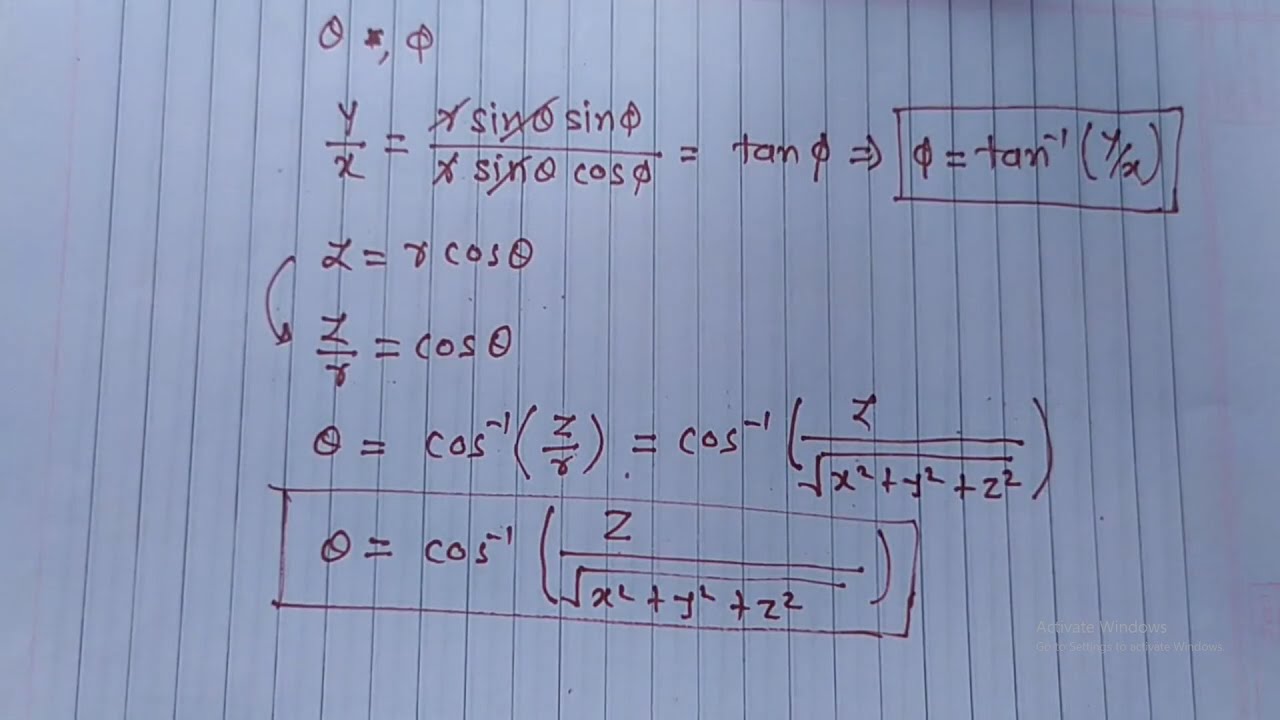 θ , φ
y/x = r sinθ sinφ / r sinθ cosφ = tan φ ⇒ φ = tan⁻¹ (y/x)
z = r cosθ
z/r = cosθ
θ = cos⁻¹ (z/r) = cos⁻¹ (z / √x² + y² + z²)
θ = cos⁻¹ (z / √x² + y² + z²)
Activate Windows
Go to Settings to activate Windows.